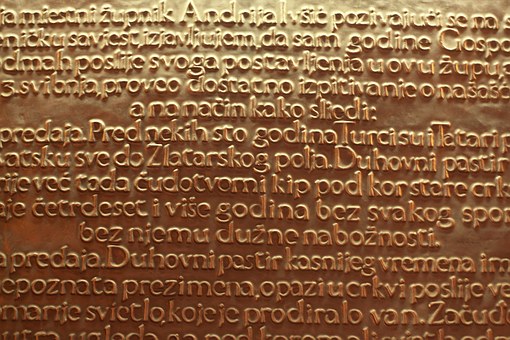 ja mjesni župnik Andrija Lyšić pozivajući se na s
ničku savjest, izjavljujem, da sam godine Gospo
dmah poslije svoga postavljenja u ovu župu
3. svibnja, proveo dostatno izpitivanje o našašć
a na način kako slijedi:
predaja. Pred nekih sto godina Turci su i Tatari p
vatsku sve do Zlatarskog polja. Duhovni pastir
je već tada čudotvorni kip pod kor stare crk
je četrdeset i više godina bez svakog spor
bez njemu dužne nabožnosti.
a predaja. Duhovni pastir kasnijeg vremena im
epoznata prezimena, opazi u crkvi poslije ve
omanje svjetlo, koje je prodiralo van. Začuđ